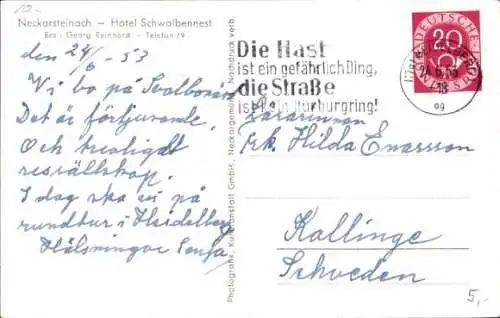 10.-
Neckarsteinach – Hotel Schwalbennest
Bes.: Georg Reinhard – Telefon 79
den 24/6 - 53
Vi bo på Svalboräs
Det är förtjusande.
Och trevligt
resällskap.
I dag ska vi på
rundtur i Heidelberg
Hälsningar
Photografie, Kunstanstalt GmbH., Neckargemünd Nachdruck verb.
Die Hast
ist ein gefährlich Ding,
die Straße
ist kein Nürburgring!
DEUTSCHE
20
18
Lärarinnan
Frk. Hilda Enarsson
Kallinge
Schweden
5,-